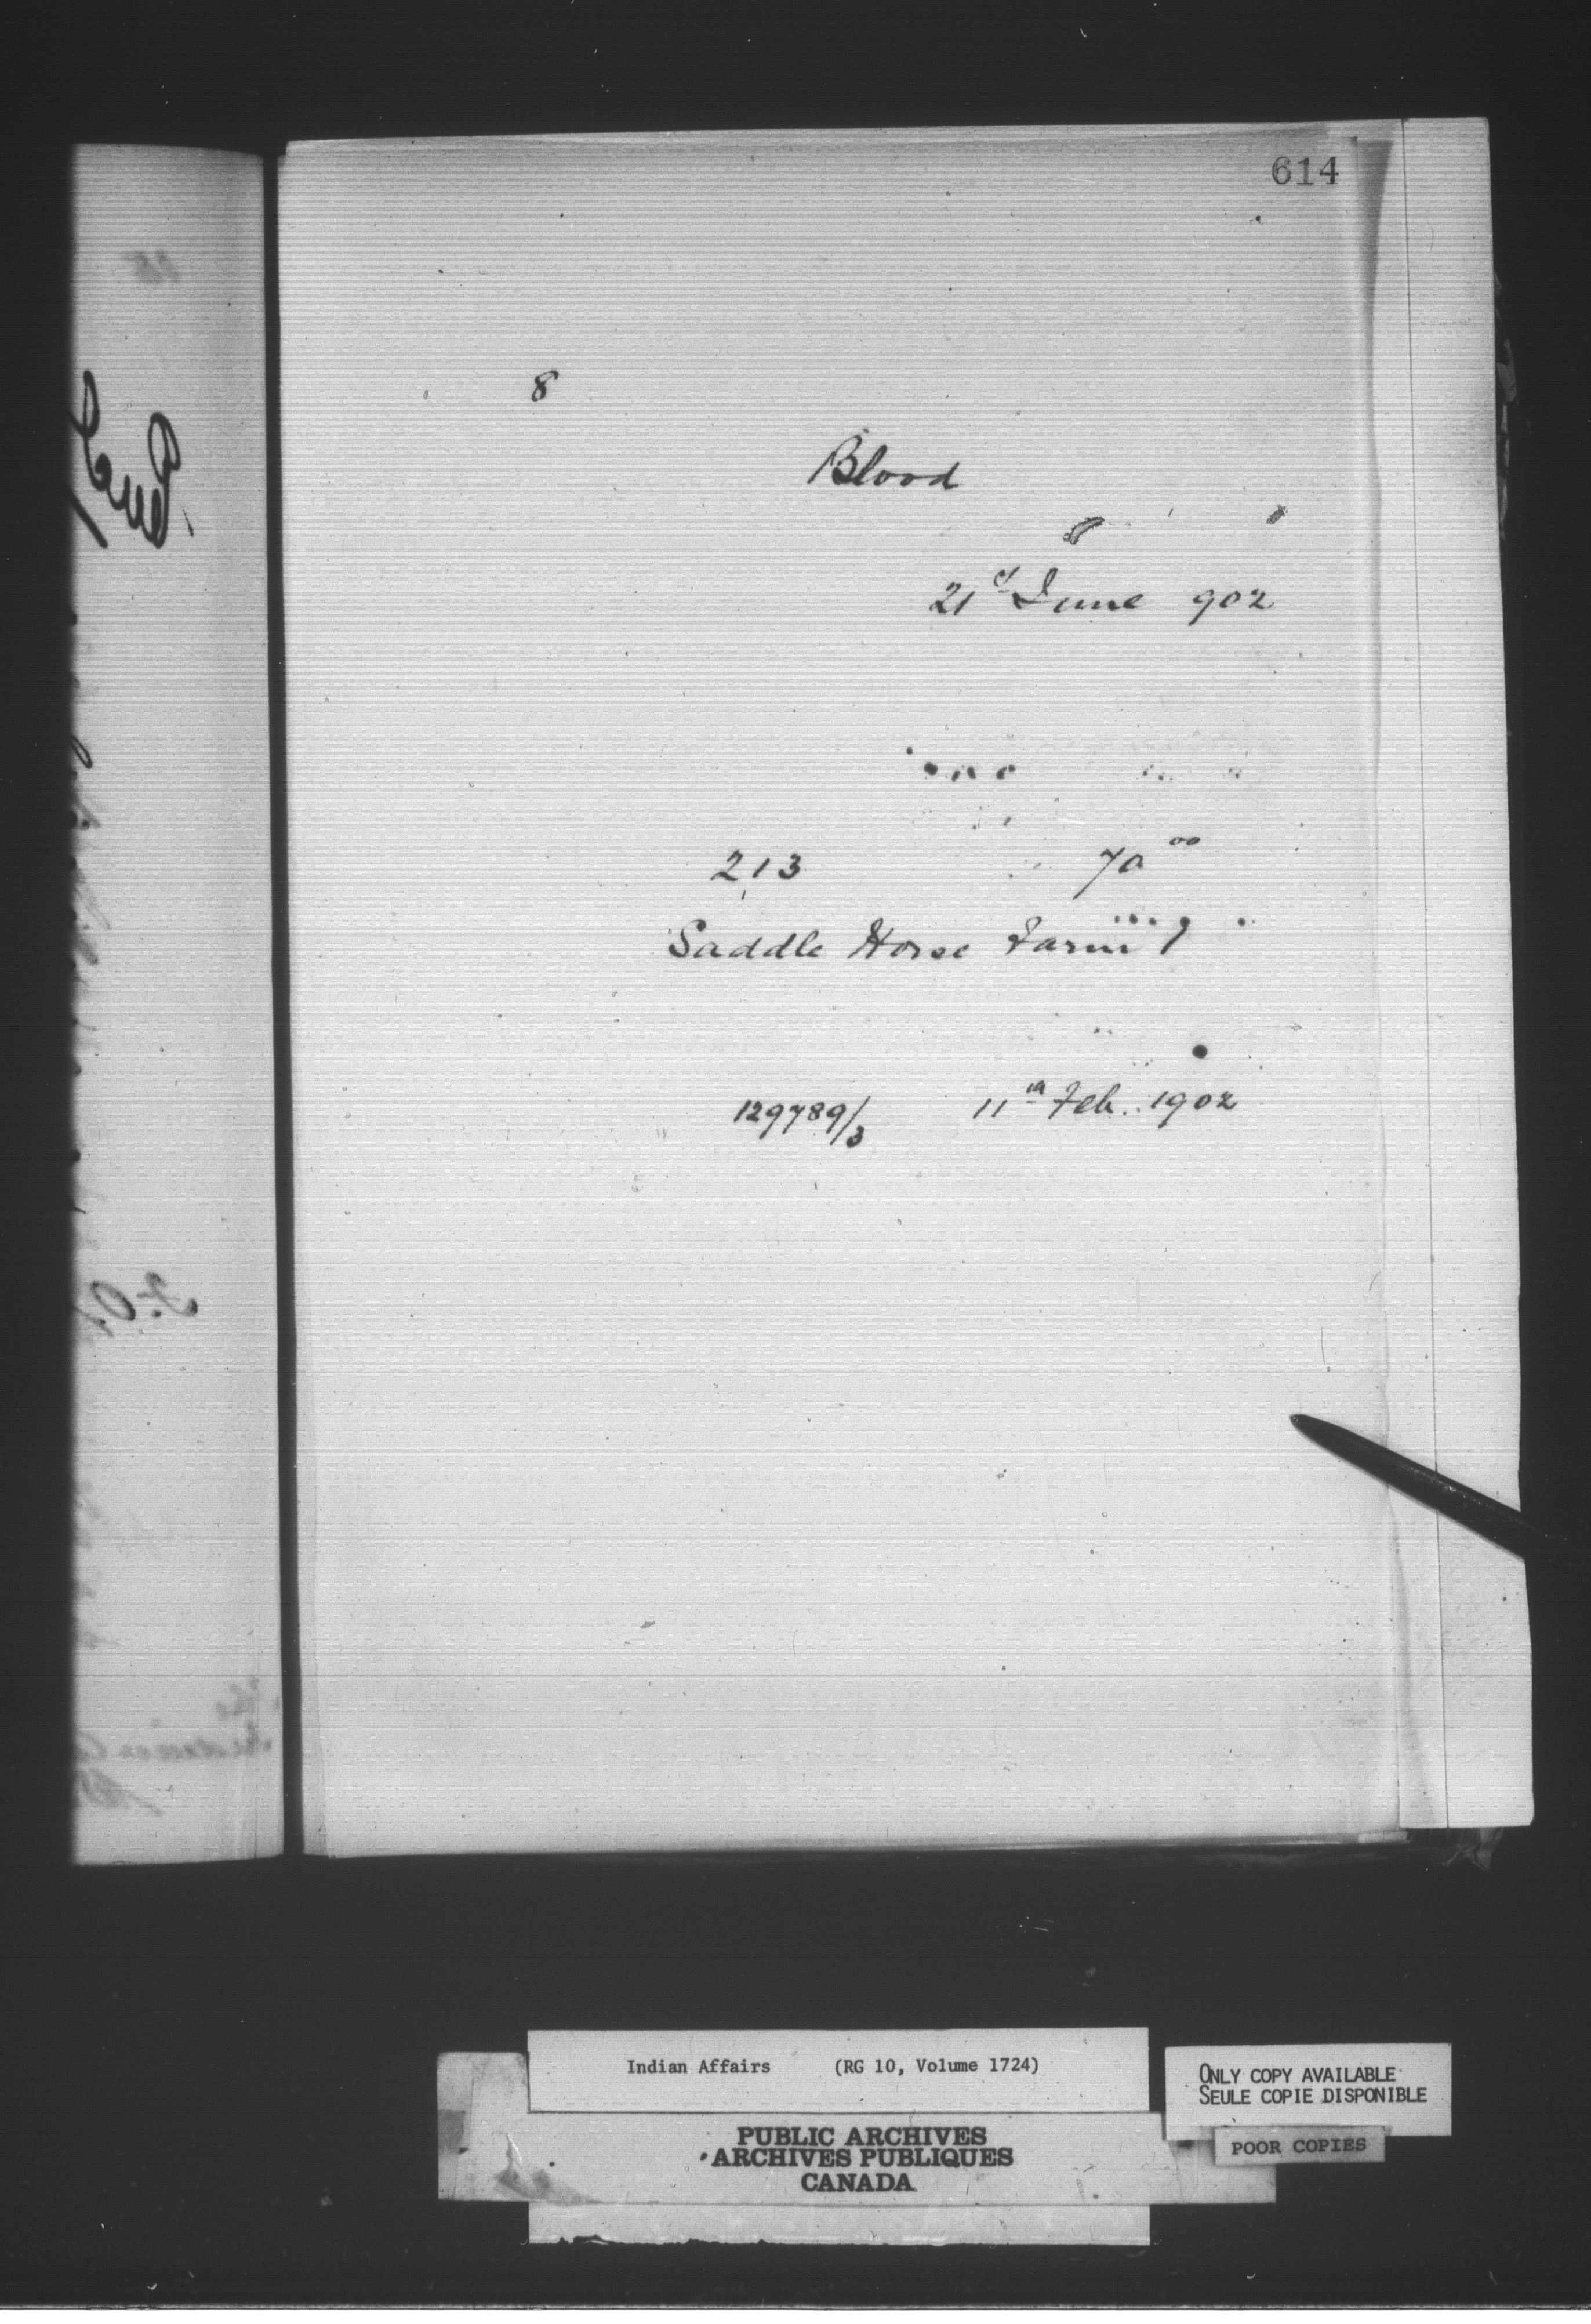 614
8
Blood
21st June 902
213 70 00
Saddle Horse Farm 1
129789/3 11th Feb. 1902
Indian Affairs (RG 10, Volume 1724)
ONLY COPY AVAILABLE
SEULE COPIE DISPONIBLE
POOR COPIES
PUBLIC ARCHIVES
ARCHIVES PUBLIQUES
CANADA